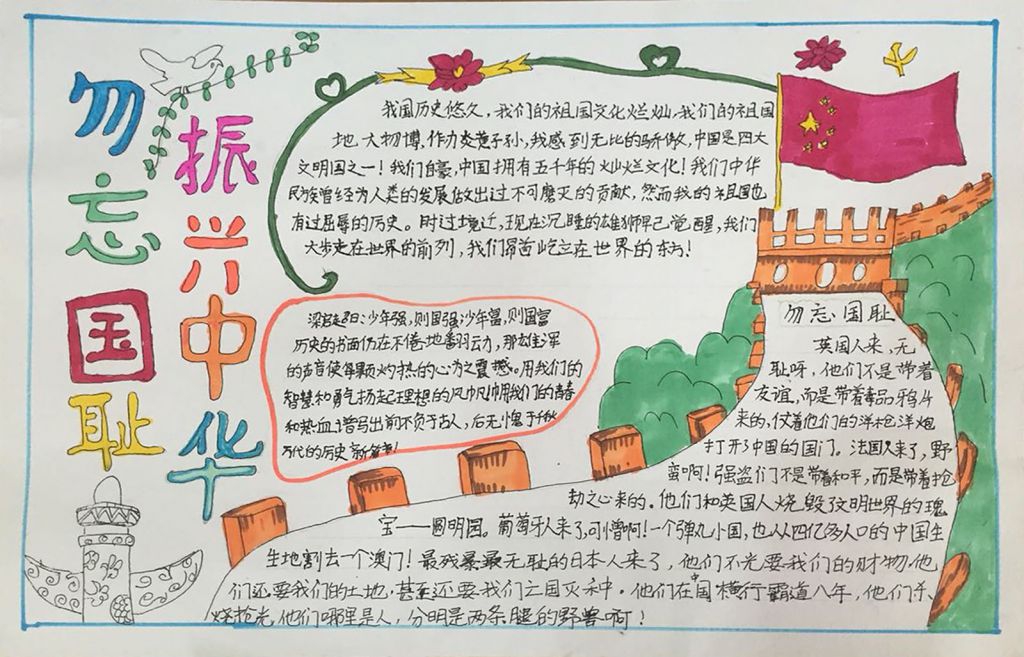 勿忘国耻
振兴中华
我国历史悠久，我们的祖国文化灿烂，我们的祖国
地大物博，作为炎黄子孙，我感到无比的骄傲，中国是四大
文明国之一！我们自豪，中国拥有五千年的灿烂文化！我们中华
民族曾经为人类的发展做出过不可磨灭的贡献，然而我的祖国也
有过屈辱的历史。时过境迁，现在沉睡的雄狮早已觉醒，我们
大步走在世界的前列，我们昂首屹立在世界的东方！
梁启超：少年强，则国强；少年富，则国富
历史的书面仍在不倦地翻动，那雄浑
的声音使每颗灼热的心为之震撼。用我们的
智慧和勇气扬起理想的风帆用我们的青春
和热血谱写出前不负于古人，后无愧于千秋
万代的历史新篇章！
勿忘国耻
英国人来，无
耻呀，他们不是带着
友谊，而是带着毒品鸦片
来的，仗着他们的洋枪洋炮
打开了中国的国门。法国人来了，野
蛮啊！强盗们不是带着和平，而是带着抢
劫之心来的。他们和英国人烧毁了文明世界的瑰
宝——圆明园。葡萄牙人来了，可憎啊！一个弹丸小国，也从四亿多人口的中国生
生地割去一个澳门！最残暴最无耻的日本人来了，他们不光要我们的财物，他
们还要我们的土地，甚至还要我们亡国灭种。他们在中国横行霸道八年，他们杀
烧抢光，他们哪里是人，分明是两条腿的野兽啊！